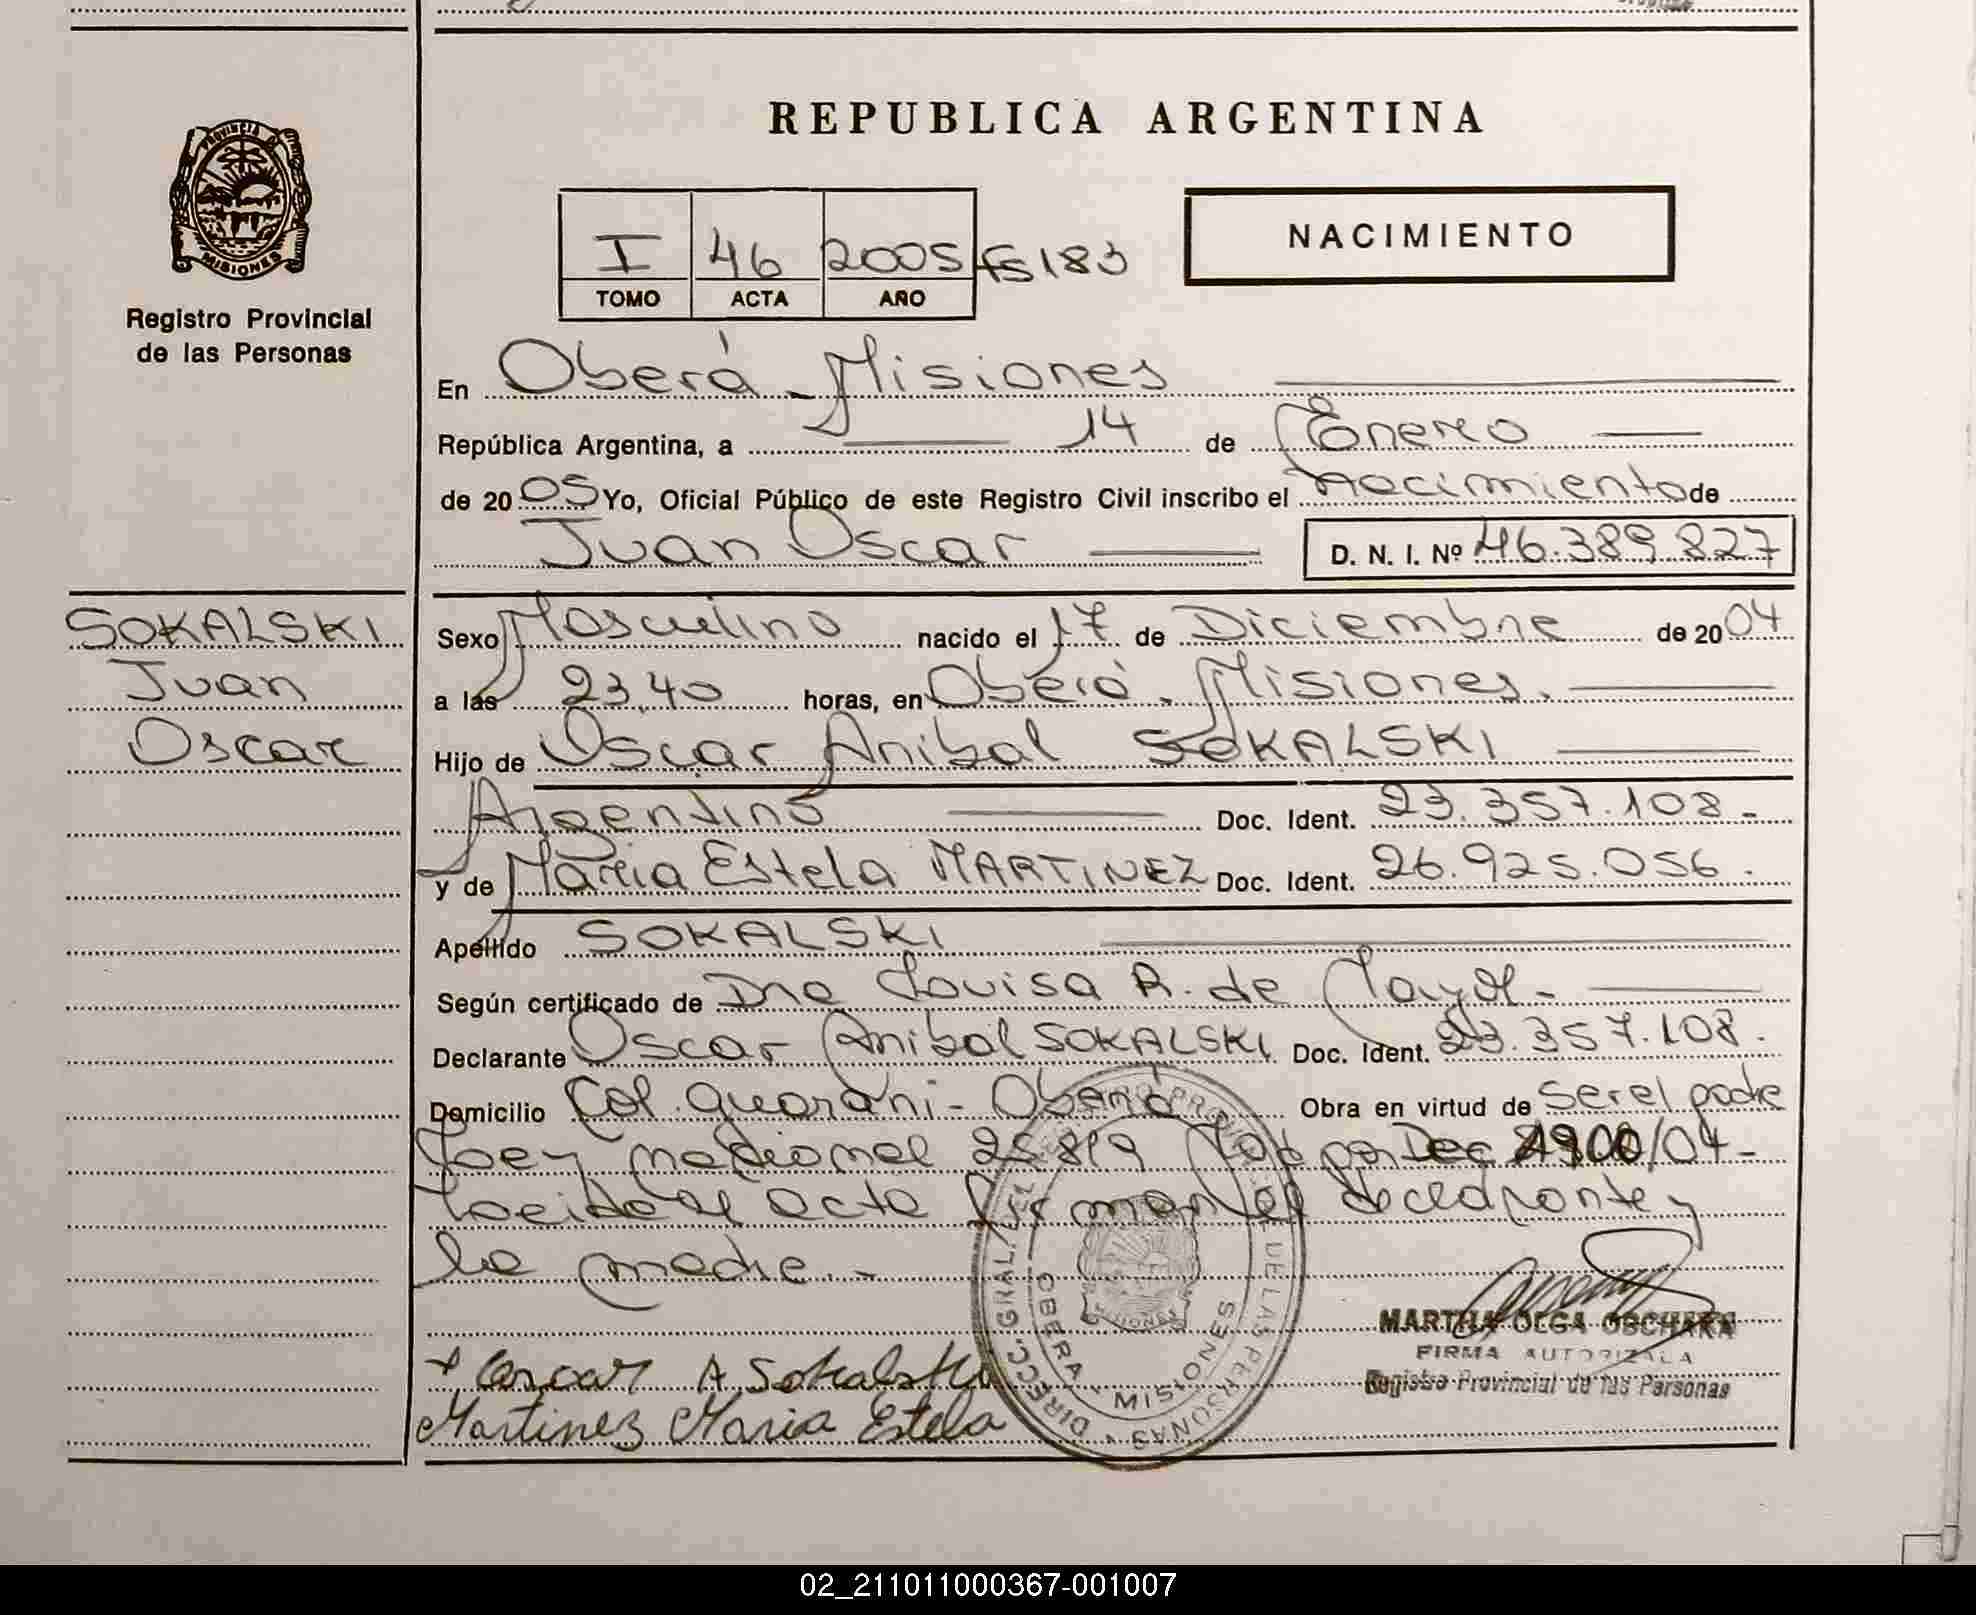 REPUBLICA ARGENTINA
PROVINCIA DE
MISIONES
Registro Provincial
de las Personas
NACIMIENTO
I 46 2005 fs 183
TOMO ACTA AÑO
En Oberá - Misiones
República Argentina, a 14 de Enero
de 2005 Yo, Oficial Público de este Registro Civil inscribo el nacimiento de
Juan Oscar D. N. I. Nº 46.389.827
SOKALSKI
Juan
Oscar
Sexo Masculino nacido el 17 de Diciembre de 2004
a las 23,40 horas, en Oberá - Misiones.
Hijo de Oscar Anibal SOKALSKI
Argentino Doc. Ident. 23.357.108.-
y de Maria Estela MARTINEZ Doc. Ident. 26.925.056.
Apellido SOKALSKI
Según certificado de Dra Louisa R. de
Declarante Oscar Anibal SOKALSKI Doc. Ident. 23.357.108.
Domicilio Col. Guarani - Oberá Obra en virtud de ser el padre
Ley nacional 25819 por Dec 1900/04-
Leida el acta firman el declarante y
la madre.-
+ Oscar A Sokalski
Martinez Maria Estela
DIRECC. GRAL. DEL REGISTRO PROVINCIAL DE LAS PERSONAS
OBERA MISIONES
MARTHA OLGA OBCHARA
FIRMA AUTORIZADA
Registro Provincial de las Personas
02_211011000367-001007